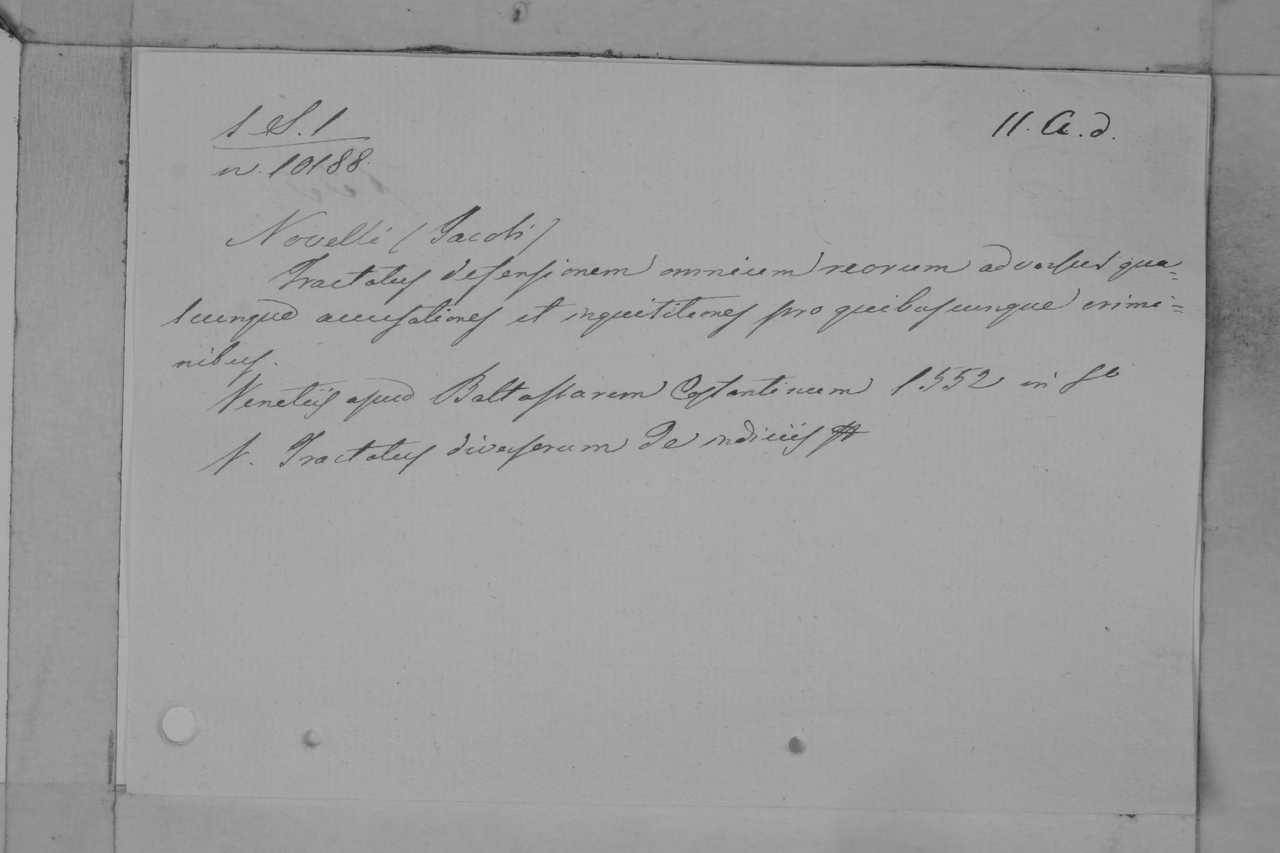 1 S. 1
n. 10188.
11. A. d.
Novelli (Jacobi)
Tractatus defensionem omnium reorum adversus qua-
scunque accusationes et inquisitiones pro quibuscunque crimi=
nibus.
Venetiis apud Baltassarem Costantinum 1552 in 8o
V. Tractatus diversorum De indiciis